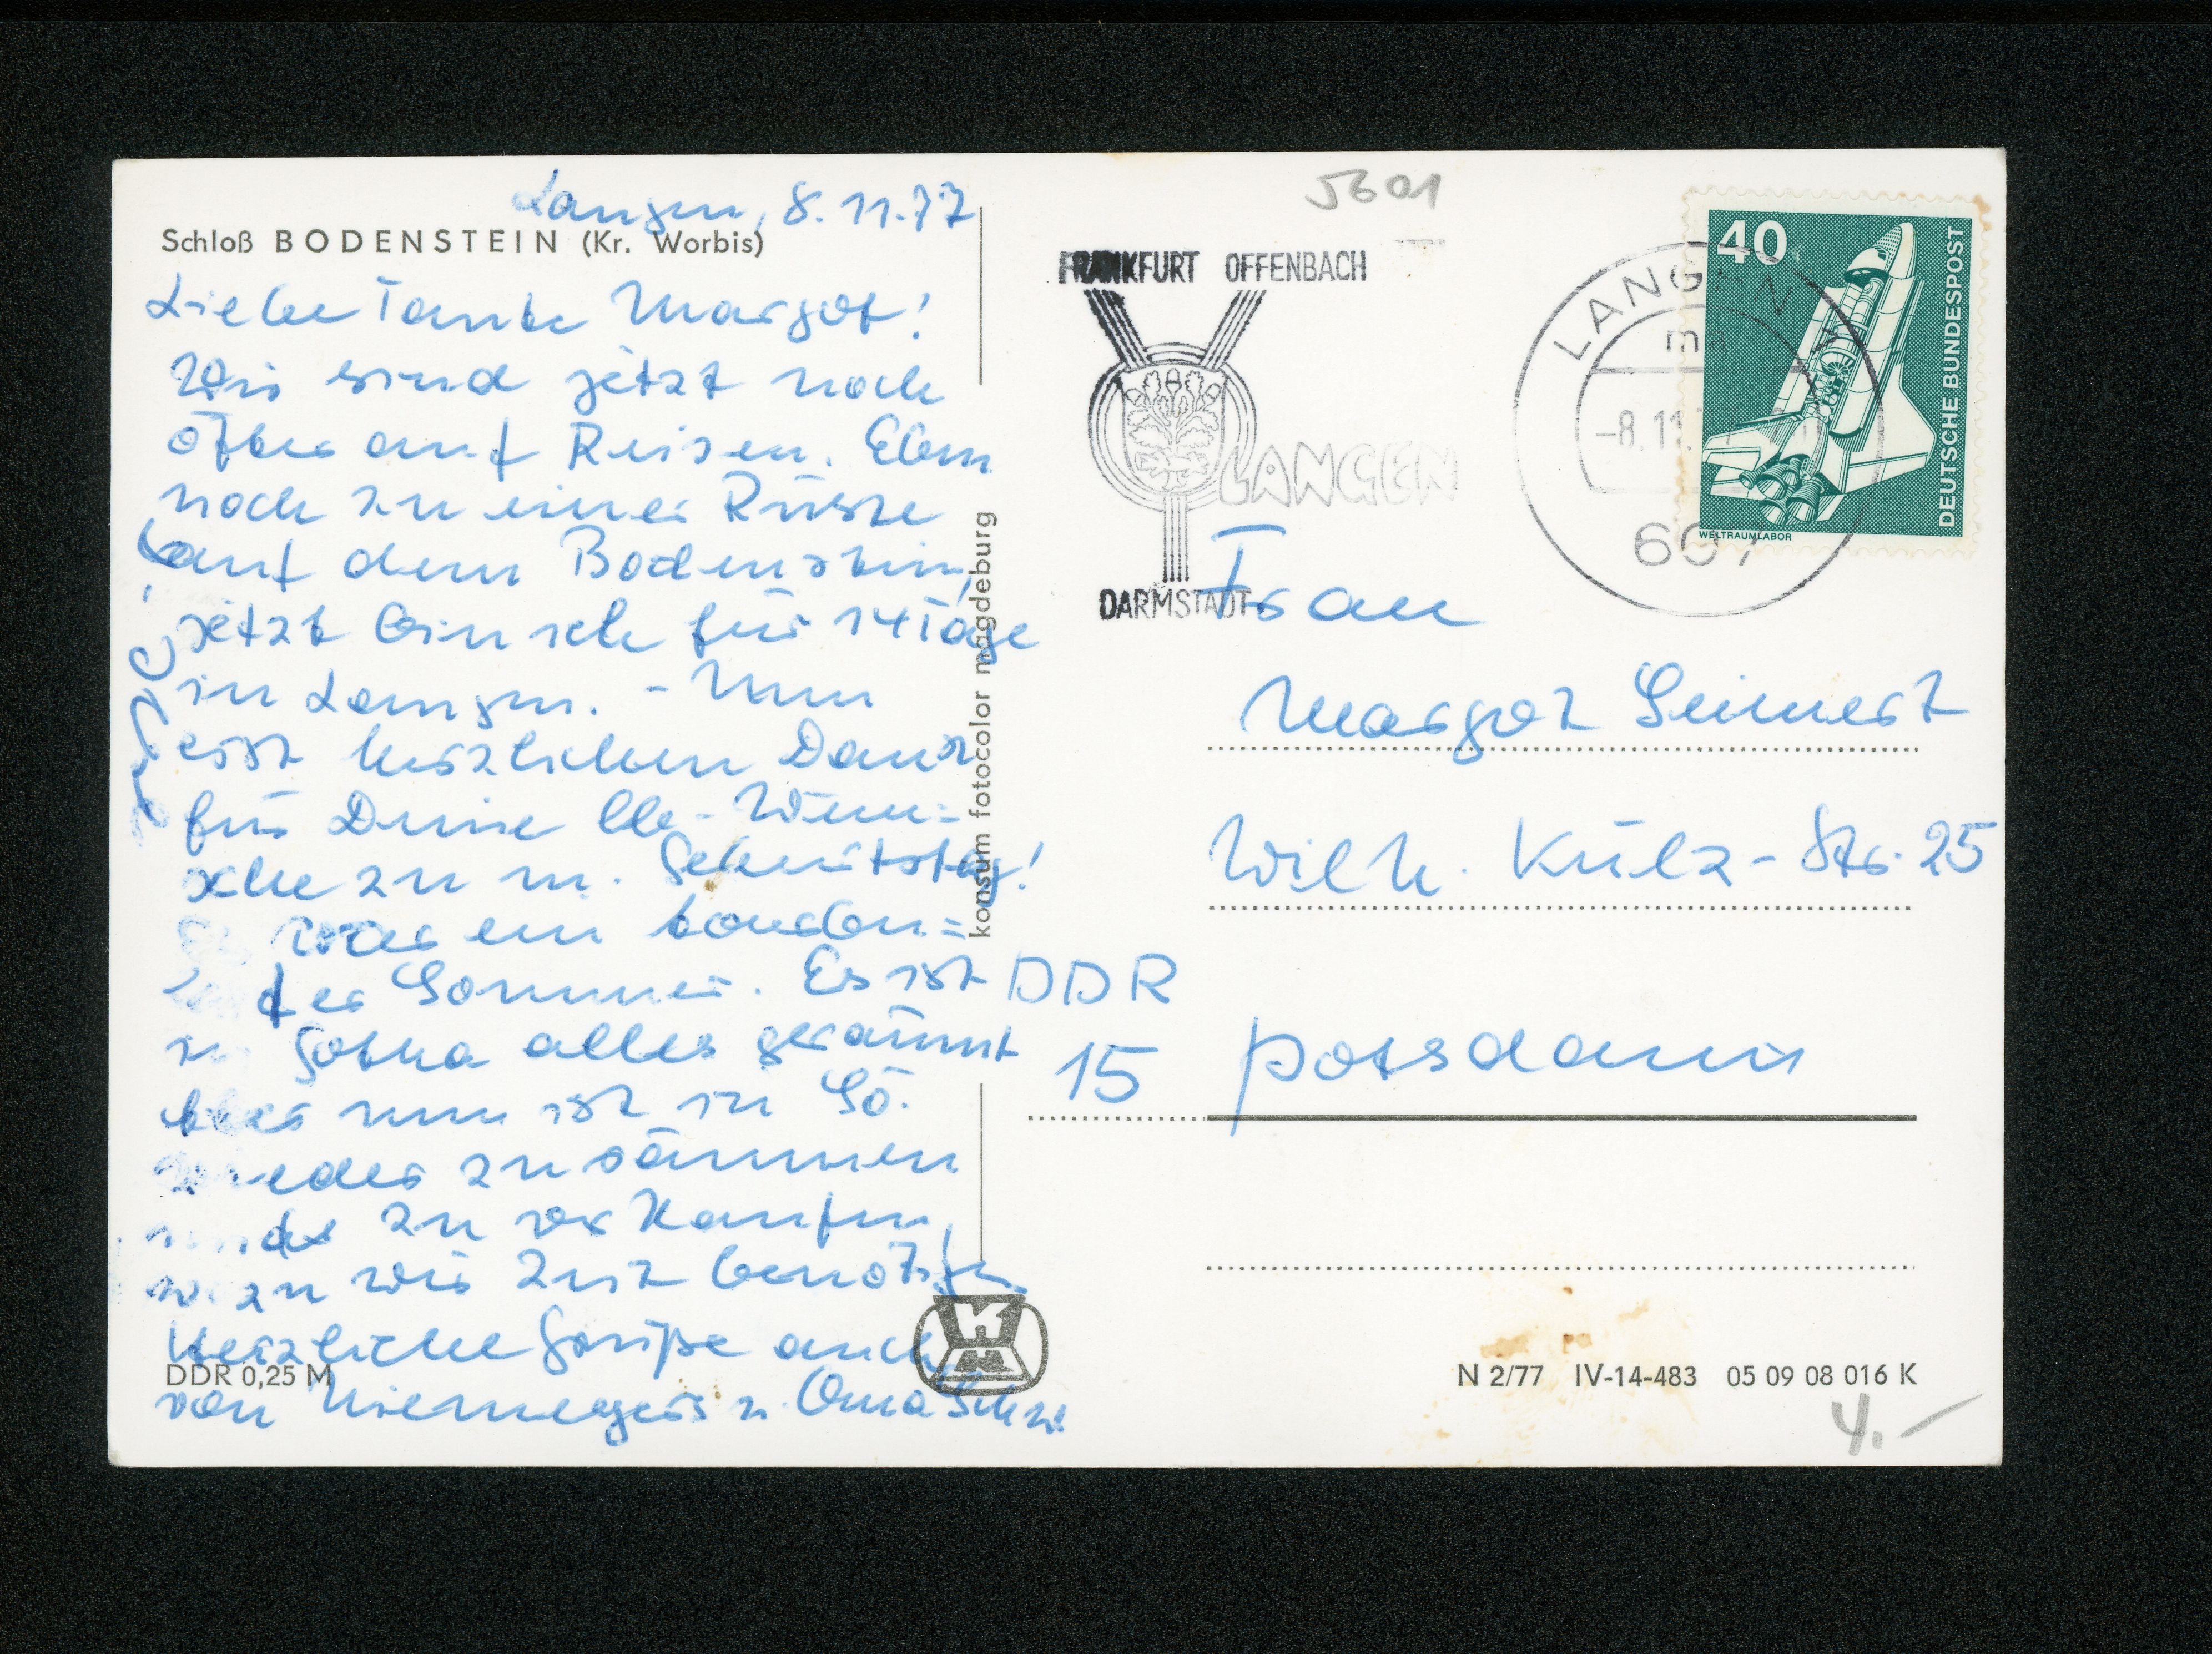 Langen, 8.11.77
Schloß BODENSTEIN (Kr. Worbis)
Liebe Tante Margot!
Wir sind jetzt noch
öfter auf Reisen. Eben
noch zu einer Rüste
auf dem Bodenstein,
jetzt bin ich für 14 Tage
in Langen. - Nun
erst herzlichen Dank
für Deine lb. Wün=
sche zu m. Geburtstag!
war ein
der Sommer. Es ist
in Gotha alles geräumt
aber nun ist in Gö.
wieder zu räumen
zu verkaufen,
wozu wir Zeit benötigen
Herzliche Grüße auch
von Niemeyers u. Oma
DDR 0,25 M
konsum fotocolor magdeburg
5601
FRANKFURT OFFENBACH
LANGEN
DARMSTADT
LANGEN
ma
-8.11.
607
40
DEUTSCHE BUNDESPOST
WELTRAUMLABOR
Frau
Margot
Wilh. Külz-Str. 25
DDR
15 Potsdam
N 2/77 IV-14-483 05 09 08 016 K
4.-